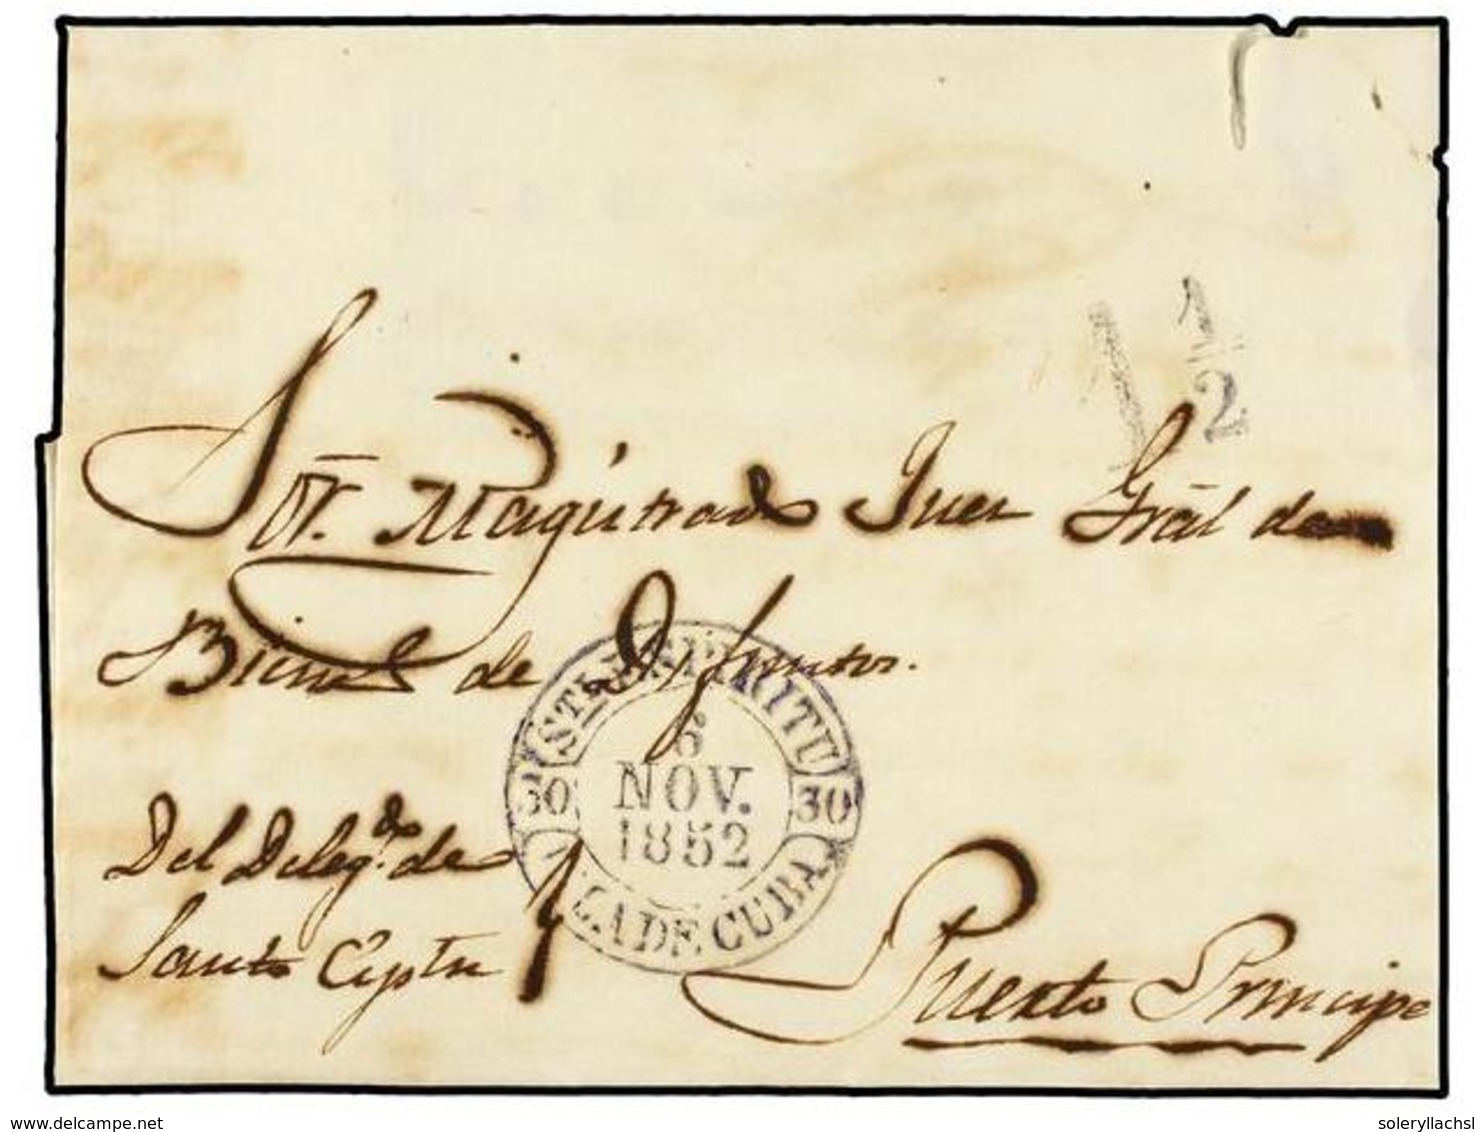 1 1/2
Sōr. Magistrado Juez Grāl de
Bienes de Difuntos.
STI. ESPIRITU
6
NOV.
1852
30 30
ISLA DE CUBA
Del Deleg.do de
Santo Espiritu
Puerto Principe
delcampe.net
soleryllachsl